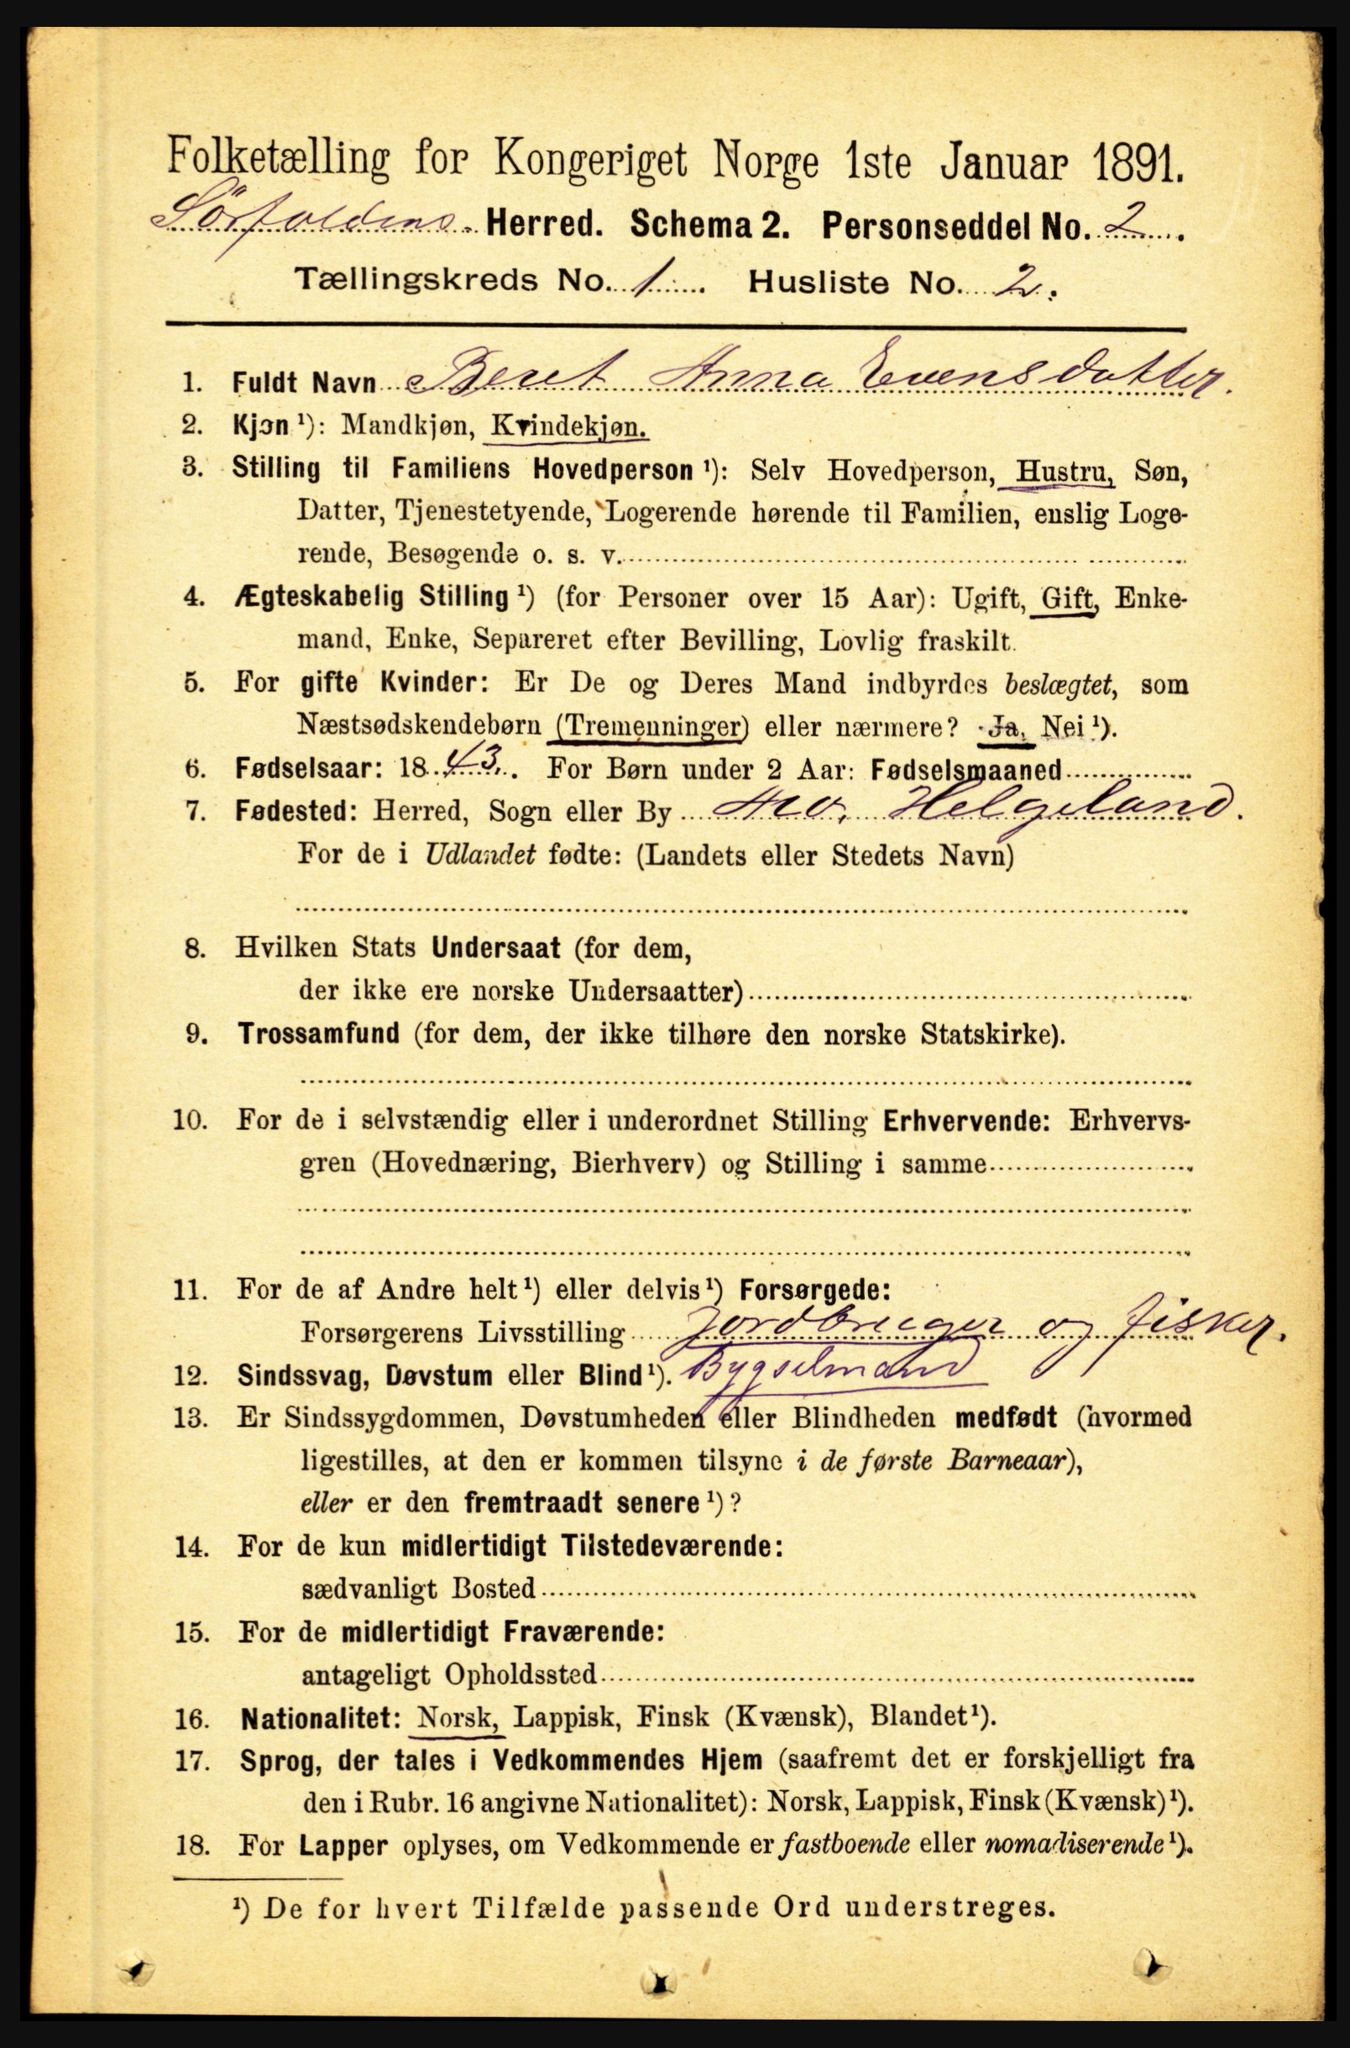 Folketælling for Kongeriget Norge 1ste Januar 1891.
Sörfoldens Herred. Schema 2. Personseddel No. 2
Tællingskreds No. 1 Husliste No. 2.
1. Fuldt Navn Beret Anna Evensdatter.
2. Kjøn ¹): Mandkjøn, Kvindekjøn.
3. Stilling til Familiens Hovedperson ¹): Selv Hovedperson, Hustru, Søn,
Datter, Tjenestetyende, Logerende hørende til Familien, enslig Loge-
rende, Besøgende o. s. v.
4. Ægteskabelig Stilling ¹) (for Personer over 15 Aar): Ugift, Gift, Enke-
mand, Enke, Separeret efter Bevilling, Lovlig fraskilt.
5. For gifte Kvinder: Er De og Deres Mand indbyrdes beslægtet, som
Næstsødskendebørn (Tremenninger) eller nærmere? Ja, Nei ¹).
6. Fødselsaar: 1843. For Børn under 2 Aar: Fødselsmaaned
7. Fødested: Herred, Sogn eller By Mo, Helgeland.
For de i Udlandet fødte: (Landets eller Stedets Navn)
8. Hvilken Stats Undersaat (for dem,
der ikke ere norske Undersaatter)
9. Trossamfund (for dem, der ikke tilhøre den norske Statskirke).
10. For de i selvstændig eller i underordnet Stilling Erhvervende: Erhvervs-
gren (Hovednæring, Bierhverv) og Stilling i samme
11. For de af Andre helt ¹) eller delvis ¹) Forsørgede:
Forsørgerens Livsstilling Jordbruger og fisker.
12. Sindssvag, Døvstum eller Blind ¹). Bygselmand
13. Er Sindssygdommen, Døvstumheden eller Blindheden medfødt (hvormed
ligestilles, at den er kommen tilsyne i de første Barneaar),
eller er den fremtraadt senere ¹)?
14. For de kun midlertidigt Tilstedeværende:
sædvanligt Bosted
15. For de midlertidigt Fraværende:
antageligt Opholdssted
16. Nationalitet: Norsk, Lappisk, Finsk (Kvænsk), Blandet ¹).
17. Sprog, der tales i Vedkommendes Hjem (saafremt det er forskjelligt fra
den i Rubr. 16 angivne Nationalitet): Norsk, Lappisk, Finsk (Kvænsk) ¹).
18. For Lapper oplyses, om Vedkommende er fastboende eller nomadiserende ¹).
¹) De for hvert Tilfælde passende Ord understreges.